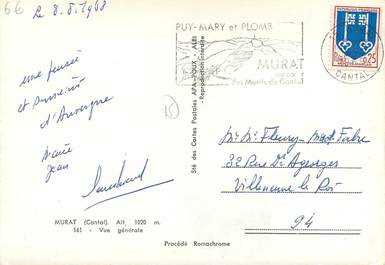 6€
Le 8.8.1968
PUY-MARY et PLOMB
MURAT
des Monts du Cantal
REPUBLIQUE FRANCAISE
0,25
CANTAL
une pensée
et
d'Auvergne
Marie
Jean
15
Sté des Cartes Postales APA-POUX - ALBI
- Reproduction interdite
Mr Mme Fleury
32 Rue Dr
Villeneuve le Roi
94
MURAT (Cantal). Alt. 1020 m.
161 - Vue générale
Procédé Romachrome